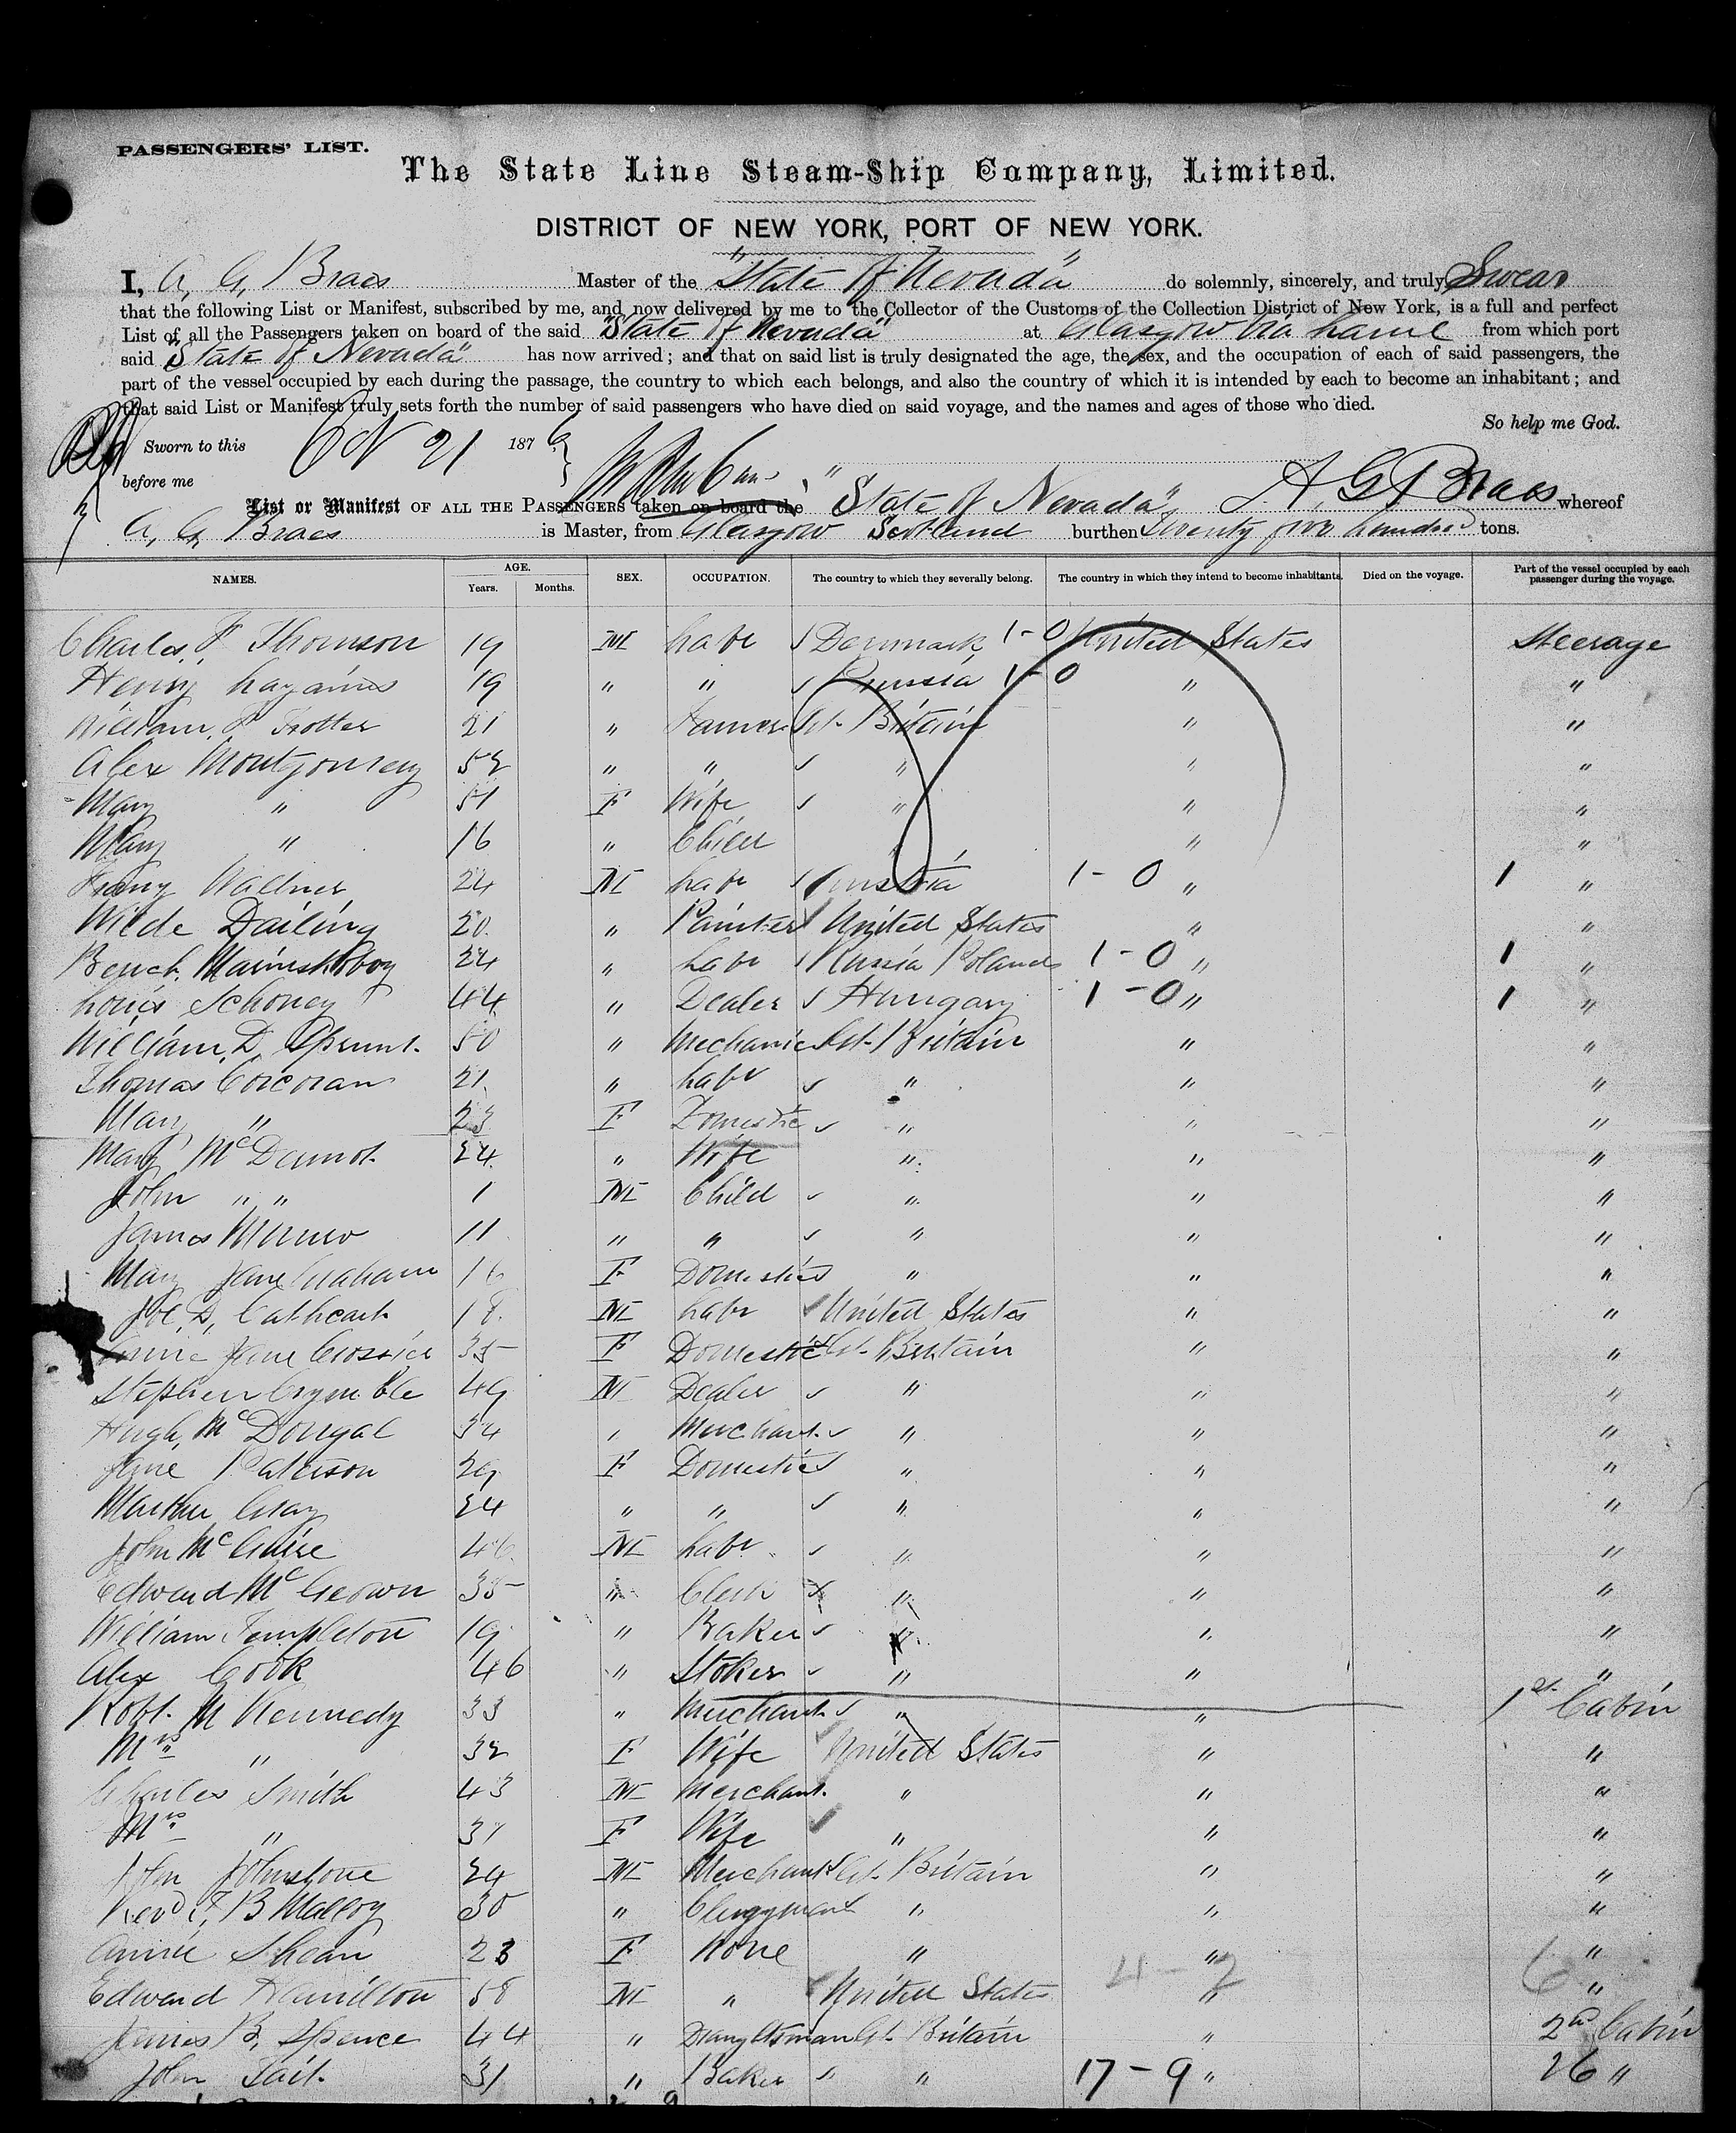 PASSENGERS' LIST.
The State Line Steam-Ship Company, Limited.
DISTRICT OF NEW YORK, PORT OF NEW YORK.
I, A, G, Braes Master of the "State of Nevada" do solemnly, sincerely, and truly Swear
that the following List or Manifest, subscribed by me, and now delivered by me to the Collector of the Customs of the Collection District of New York, is a full and perfect
List of all the Passengers taken on board of the said "State of Nevada" at Glasgow via Larne from which port
said "State of Nevada" has now arrived; and that on said list is truly designated the age, the sex, and the occupation of each of said passengers, the
part of the vessel occupied by each during the passage, the country to which each belongs, and also the country of which it is intended by each to become an inhabitant; and
that said List or Manifest truly sets forth the number of said passengers who have died on said voyage, and the names and ages of those who died.
So help me God.
Sworn to this 21 1876
before me
List or Manifest OF ALL THE PASSENGERS taken on board the "State of Nevada" A, G Braes whereof
A, G, Braes is Master, from Glasgow Scotland burthen Twenty five hundred tons.
NAMES. AGE. SEX. OCCUPATION. The country to which they severally belong. The country in which they intend to become inhabitants. Died on the voyage. Part of the vessel occupied by each passenger during the voyage.
Years. Months.
Charles F Thomson 19 M Labr ✓ Denmark 1-0 United States Steerage
Henry 19 " " ✓ Russia 1-0 " "
William, P Trotter 21 " Farmer Gt. Britain " "
Alex Montgomery 52 " " ✓ " " "
Mary " 51 F Wife ✓ " " "
Mary " 16 " Child " " "
Wallner 24 M Labr ✓ 1-0 " 1 "
Wilde Dailing 20 " Painter ✓ United States " "
24 " Labr ✓ Russia Poland 1-0 " 1 "
Louis Schoney 44 " Dealer ✓ Hungary 1-0 " 1 "
William, D, Sprunt. 50 " Mechanic Gt. Britain " "
Thomas Corcoran 21 " Labr ✓ " " "
Mary " 23 F Domestic ✓ " " "
Mary McDermot 24 " Wife " " "
John " " 1 M Child ✓ " " "
James Munro 11 " " ✓ " " "
Mary Jane Graham 16 F Domestic ✓ " " "
D, Cathcart 18 M Labr ✓ United States " "
Annie Jane Crossier 35 F Domestic Gt. Britain " "
Stephen Crymble 49 M Dealer ✓ " " "
Hugh, McDougal 34 " Merchant ✓ " " "
Jane Paterson 29 F Domestic ✓ " " "
Martha Gray 24 " " ✓ " " "
John McGuire 46 M Labr ✓ " " "
Edward McGeown 35 " Clerk " " "
William Templeton 19 " Baker ✓ " " "
Alex Cook 46 " Stoker ✓ " " "
Robt. M Kennedy 33 " Merchant ✓ " " 1st Cabin
Mrs " 32 F Wife United States " "
Charles Smith 43 M Merchant " " "
Mrs " 31 F Wife ✓ " " "
John Johnstone 24 M Merchant Gt. Britain " "
Revd F, B Malloy 30 " Clergyman " " "
Annie Shean 23 F None " " "
Edward Hamilton 58 M " United States 4-2 " 6 "
James B, Spence 44 " Draughtsman Gt. Britain " 2nd Cabin
John Tait. 31 " Baker ✓ " 17-9 " 26 "